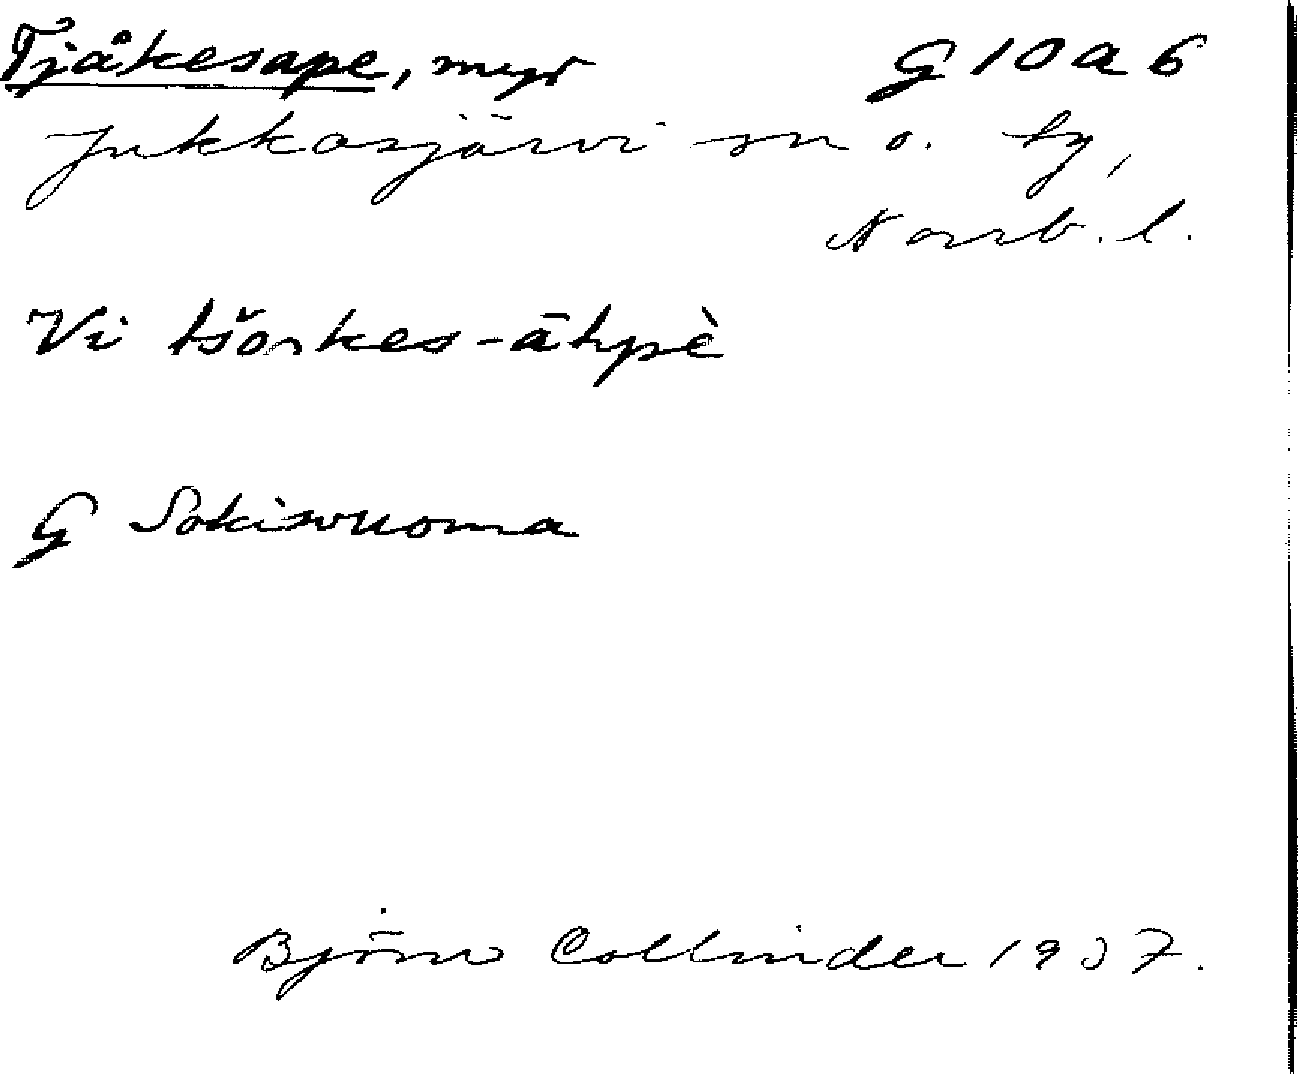 Tjåkesape, myr G 10 a 6
Jukkasjärvi sn o. tg,
Norrb. l.
Vi tšoɹkes-āhpè
G Sokisvuoma
Björn Collinder 1937.